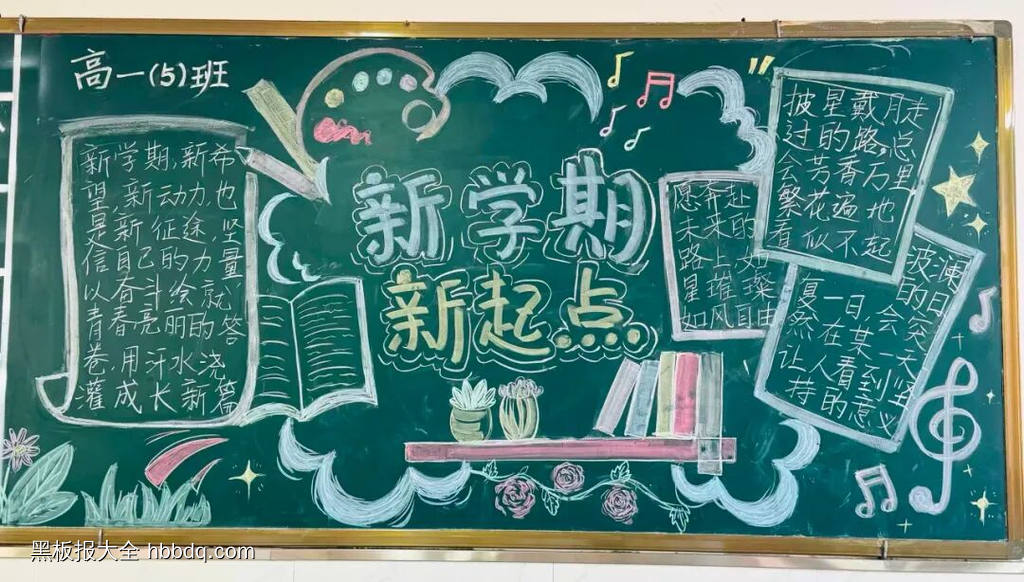 高一(5)班
新学期,新希
望,新动力,也
是新征途,坚
信自己的力量,
以奋斗绘就
青春亮丽的答
卷,用汗水浇
灌成长新篇
新学期
新起点
愿奔赴
未来的
路上,如
星璀璨
如风自由
披星戴月走
过的路,总
会芳香万里
繁花遍地
看似不起
波澜
的日
复一日
突然
会在某一天
让人看到坚
持的意义
黑板报大全 hbbdq.com